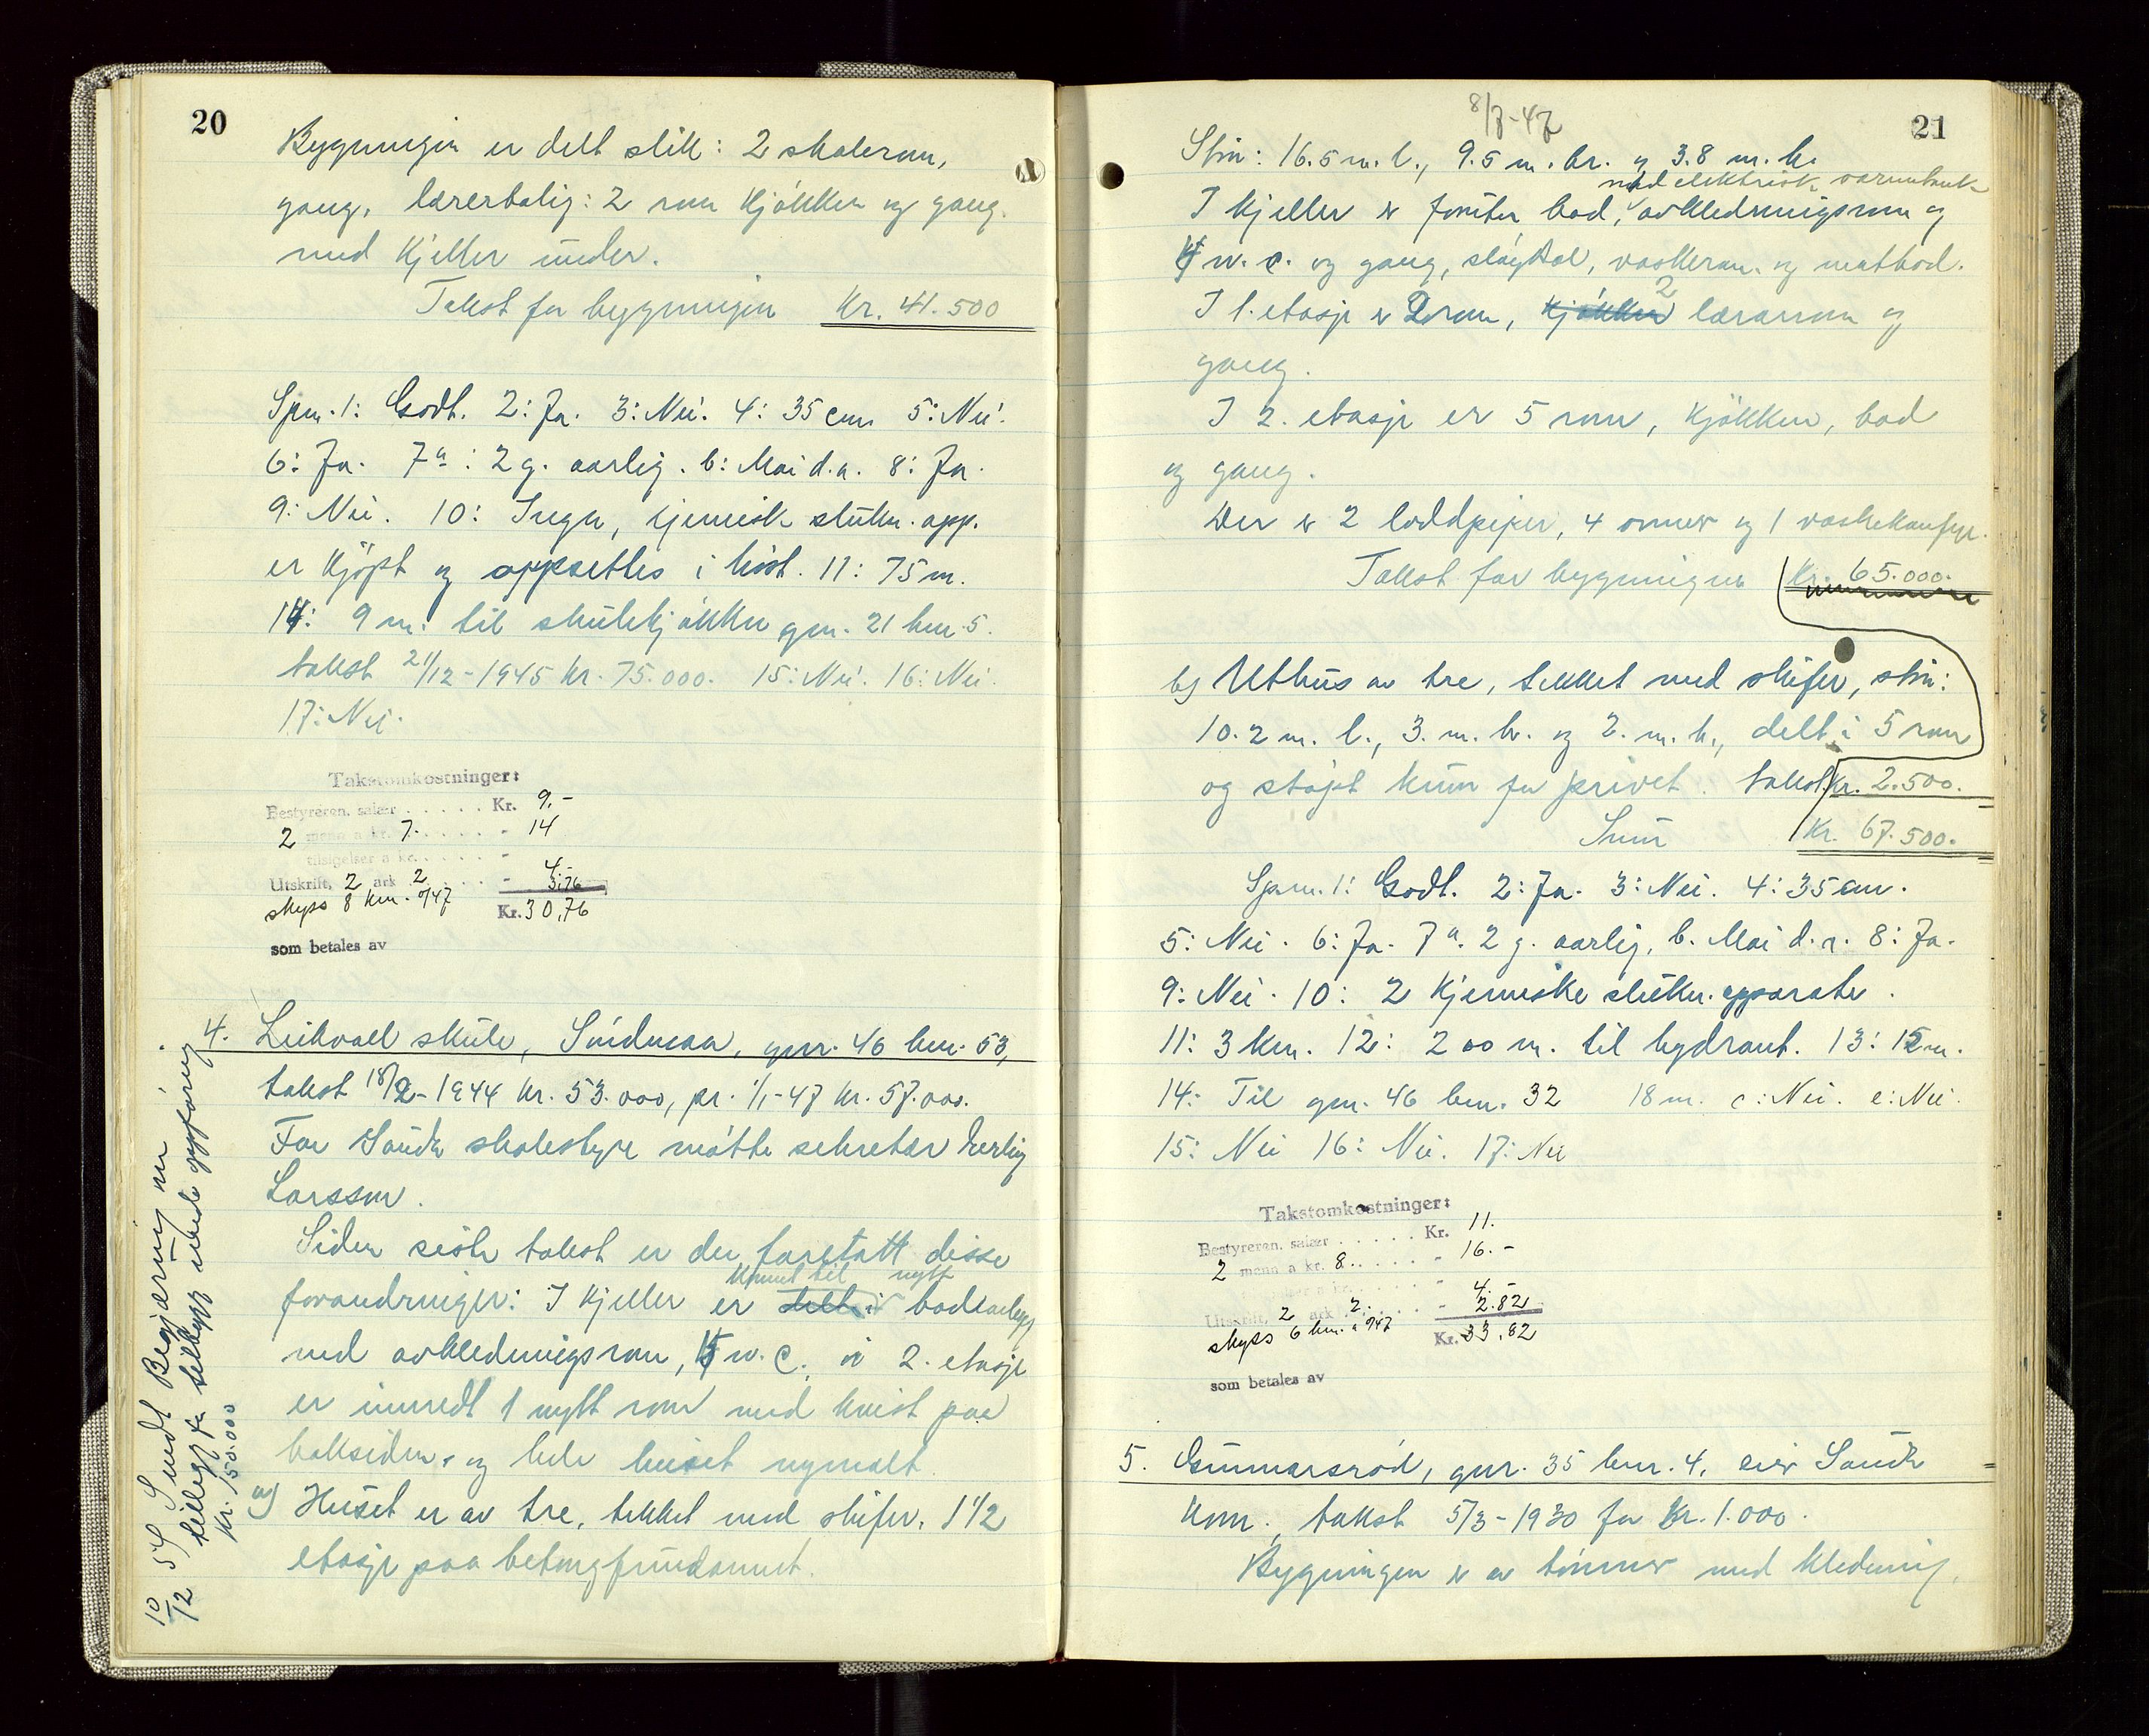 20
Bygningen er delt slik: 2 skolerom,
gang, lærerbolig: 2 rom kjøkken og gang.
med kjeller under.
Takst for bygningen Kr. 41.500
Spm. 1: Godt. 2: Ja. 3: Nei. 4: 35 cm 5: Nei.
6: Ja. 7a: 2 g. aarlig. b: Mai d.a. 8: Ja.
9: Nei. 10: Ingen, kjemisk slukn. app.
er kjøpt og oppsettes i høst. 11: 75 m.
14: 9 m. til skulekjøkken gnr. 21 bnr. 5.
takst 21/12-1945 kr. 75.000. 15: Nei. 16: Nei.
17: Nei.
Takstomkostninger:
Bestyreren, salær . . . . . Kr. 9.-
2 menn a kr. 7. . . . . . - 14
tilsigelser a kr. . . . . . -
Utskrift, 2 ark 2 . . . . - 4.-
skyss 8 km. a 0/47 3.76
Kr. 30,76
som betales av
4. Leikvoll skule, gnr. 46 bnr. 53,
takst 18/2-1944 kr. 53.000, pr. 1/1-47 kr. 57.000.
For Sauda skolestyre møtte sekretær
Larsson.
Siden siste takst er der foretatt disse
kommet til nytt
forandringer: I kjeller er delt i badeanlegg
med avkledningsrom, 4 w.c. i 2. etasje
er innredt 1 nytt rom med kvist paa
baksiden, og hele huset nymalt
a) Huset er av tre, tekket med skifer. 1 1/2
etasje paa betongfundament.
10/12 54 Sendt Begjæring om
tillegg for tilbygg under oppføring
kr. 150.000
8/7-47
21
Stør: 16.5 m. l., 9.5 m. br. og 3.8 m. h.
med elektrisk varmtank
I kjeller er bad, avkledningsrom og
4 w.c. og gang, sløydsal, vaskerom og matbod.
2
I 1. etasje er 2 rom, kjøkken lærerrom og
gang.
I 2. etasje er 5 rom, kjøkken, bad
og gang.
Der er 2 loddpiper, 4 ovner og 1
Takst for bygningen Kr. 65.000.
b) Uthus av tre, tekket med skifer, stør:
10.2 m. l., 3. m. br. og 2. m. h., delt i 5 rom
og støpt kum for privet. takst kr. 2.500.
Sum Kr. 67.500.
Spm. 1: Godt. 2: Ja. 3: Nei. 4: 35 cm.
5: Nei. 6: Ja. 7a. 2 g. aarlig, b. Mai d.a. 8: Ja.
9: Nei. 10: 2 kjemiske slukn. apparater.
11: 3 km. 12: 200 m. til hydrant. 13: 15 m.
14: Til gnr. 46 bnr. 32 18 m. c: Nei. e: Nei.
15: Nei 16: Nei. 17: Nei
Takstomkostninger:
Bestyreren, salær . . . . . Kr. 11.
2 menn a kr. 8. . . . . - 16.-
Utskrift, 2 ark 2. . . . . - 4.-
skyss 6 km. a 0/47 2.82
Kr. 33,82
som betales av
5. Gunnarsrød, gnr. 35 bnr. 4, eier Sauda
kom., takst 5/3-1930 for kr. 1.000.
Bygningen er av tømmer med kledning,